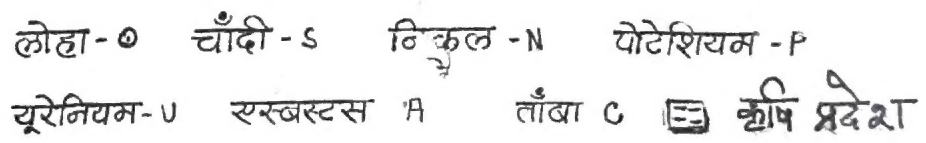 लोहा - O चाँदी - S निकल - N पोटेशियम - P
यूरेनियम - U एस्बस्टस A ताँबा C कृषि प्रदेश